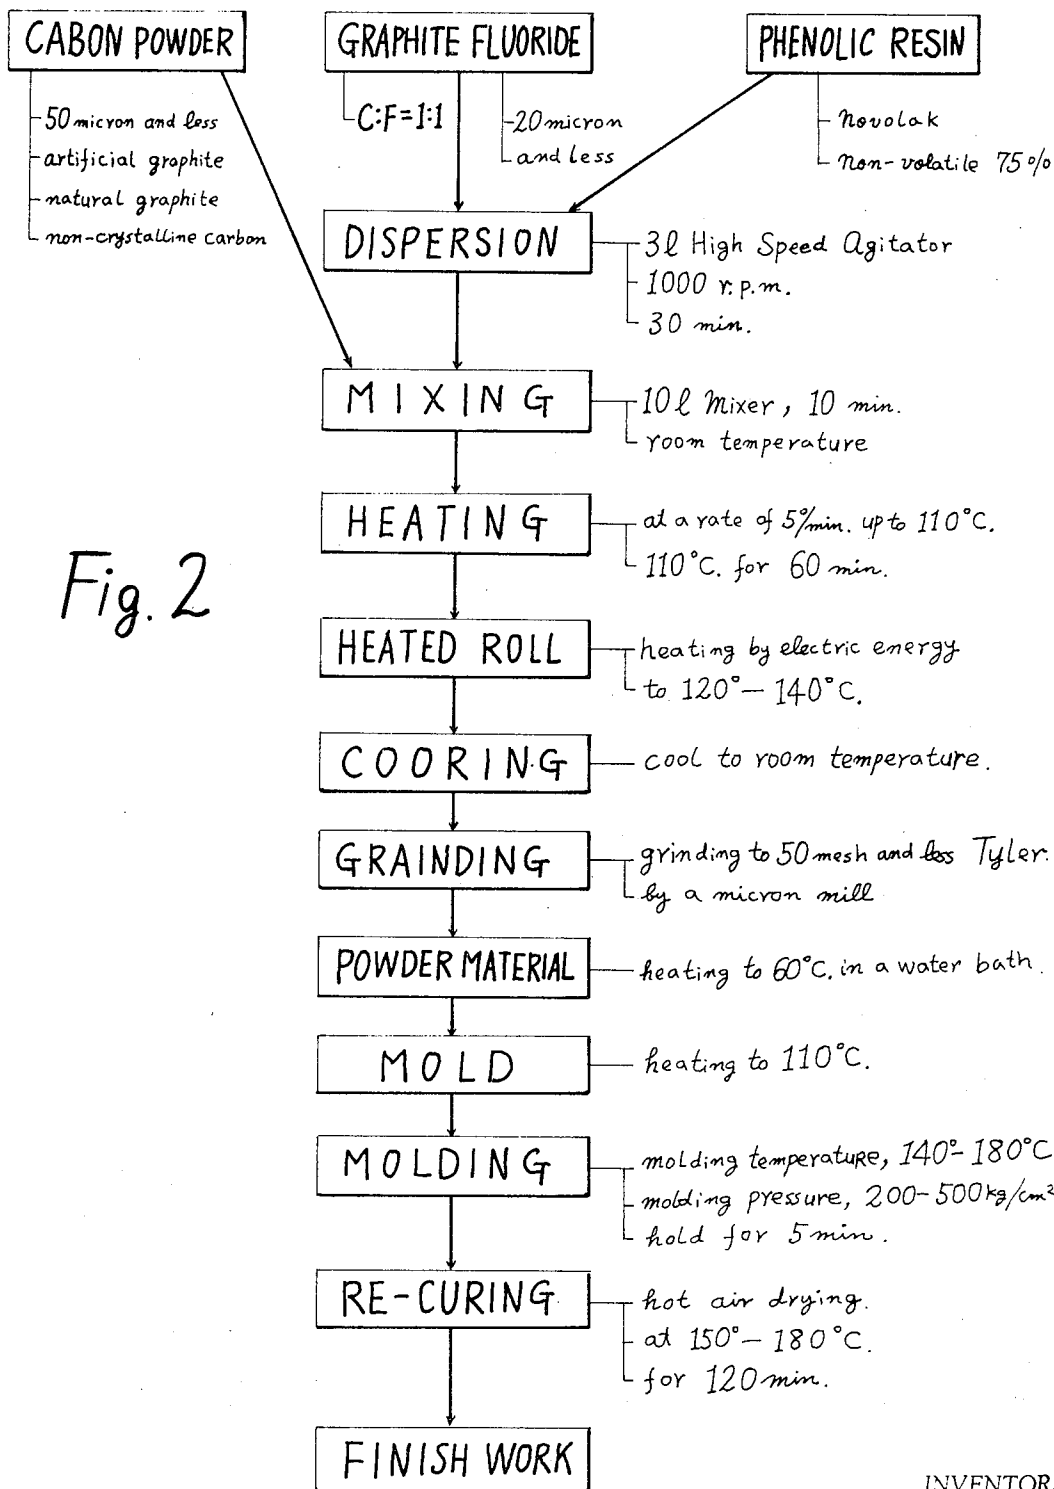 CABON POWDER
50 micron and less
artificial graphite
natural graphite
non-crystalline carbon
GRAPHITE FLUORIDE
C:F=1:1
20 micron
and less
PHENOLIC RESIN
Novolak
non-volatile 75%
DISPERSION
3ℓ High Speed Agitator
1000 r.p.m.
30 min.
MIXING
10ℓ Mixer, 10 min.
room temperature
HEATING
at a rate of 5°/min. up to 110°C.
110°C. for 60 min.
Fig. 2
HEATED ROLL
heating by electric energy
to 120°–140°C.
COORING
cool to room temperature.
GRAINDING
grinding to 50 mesh and less Tyler.
by a micron mill
POWDER MATERIAL
heating to 60°C. in a water bath.
MOLD
heating to 110°C.
MOLDING
molding temperature, 140°-180°C
molding pressure, 200-500kg/cm²
hold for 5 min.
RE-CURING
hot air drying.
at 150°–180°C.
for 120 min.
FINISH WORK
INVENTOR.